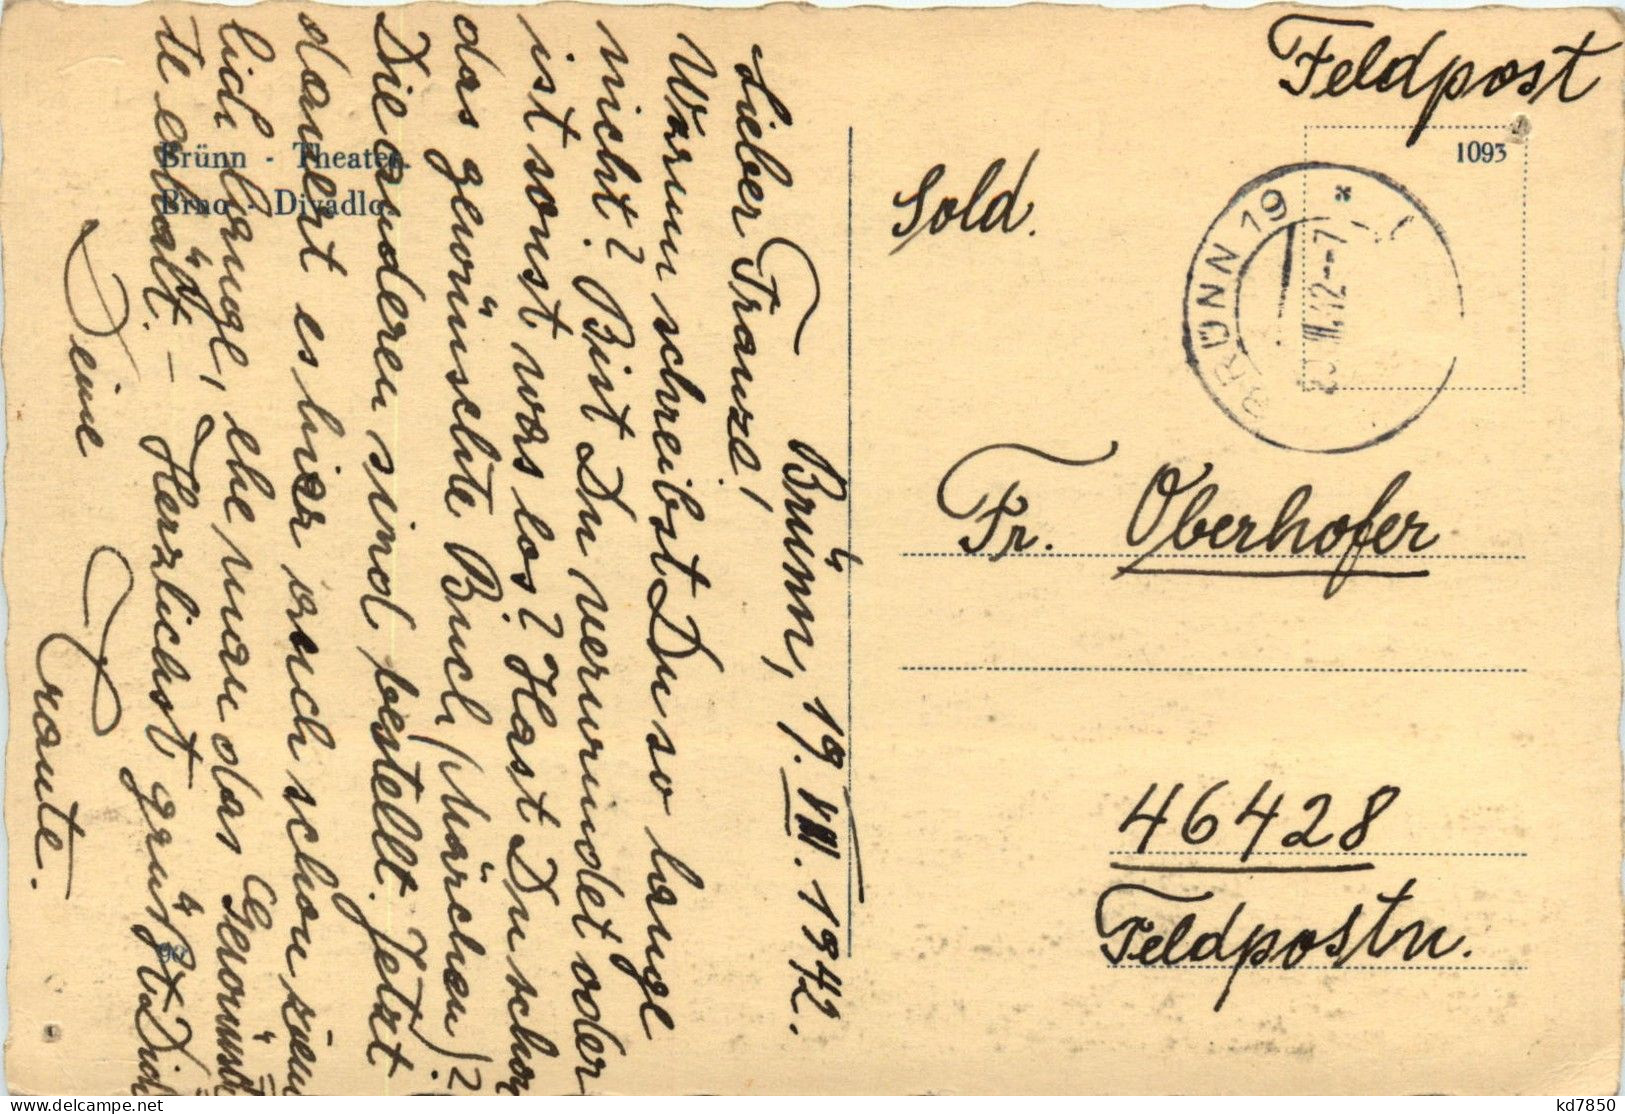 Feldpost
1093
BRÜNN 19
Sold.
Fr. Oberhofer
46428
Feldpostn.
Brünn - Theater.
Brno - Divadlo.
Brünn, 19. VIII. 1942.
Lieber Franze!
Warum schreibst Du so lange
nicht? Bist Du verwundet oder
ist sonst was los? Hast Du schon
das gewünschte Buch (Märchen)?
Die anderen sind bestellt. Jetzt
dauert es hier auch schon ziem
lich lange, ehe man das Gewünsch
te erhält. – Herzlichst grüßt Dich
Deine Traute.
kd7850